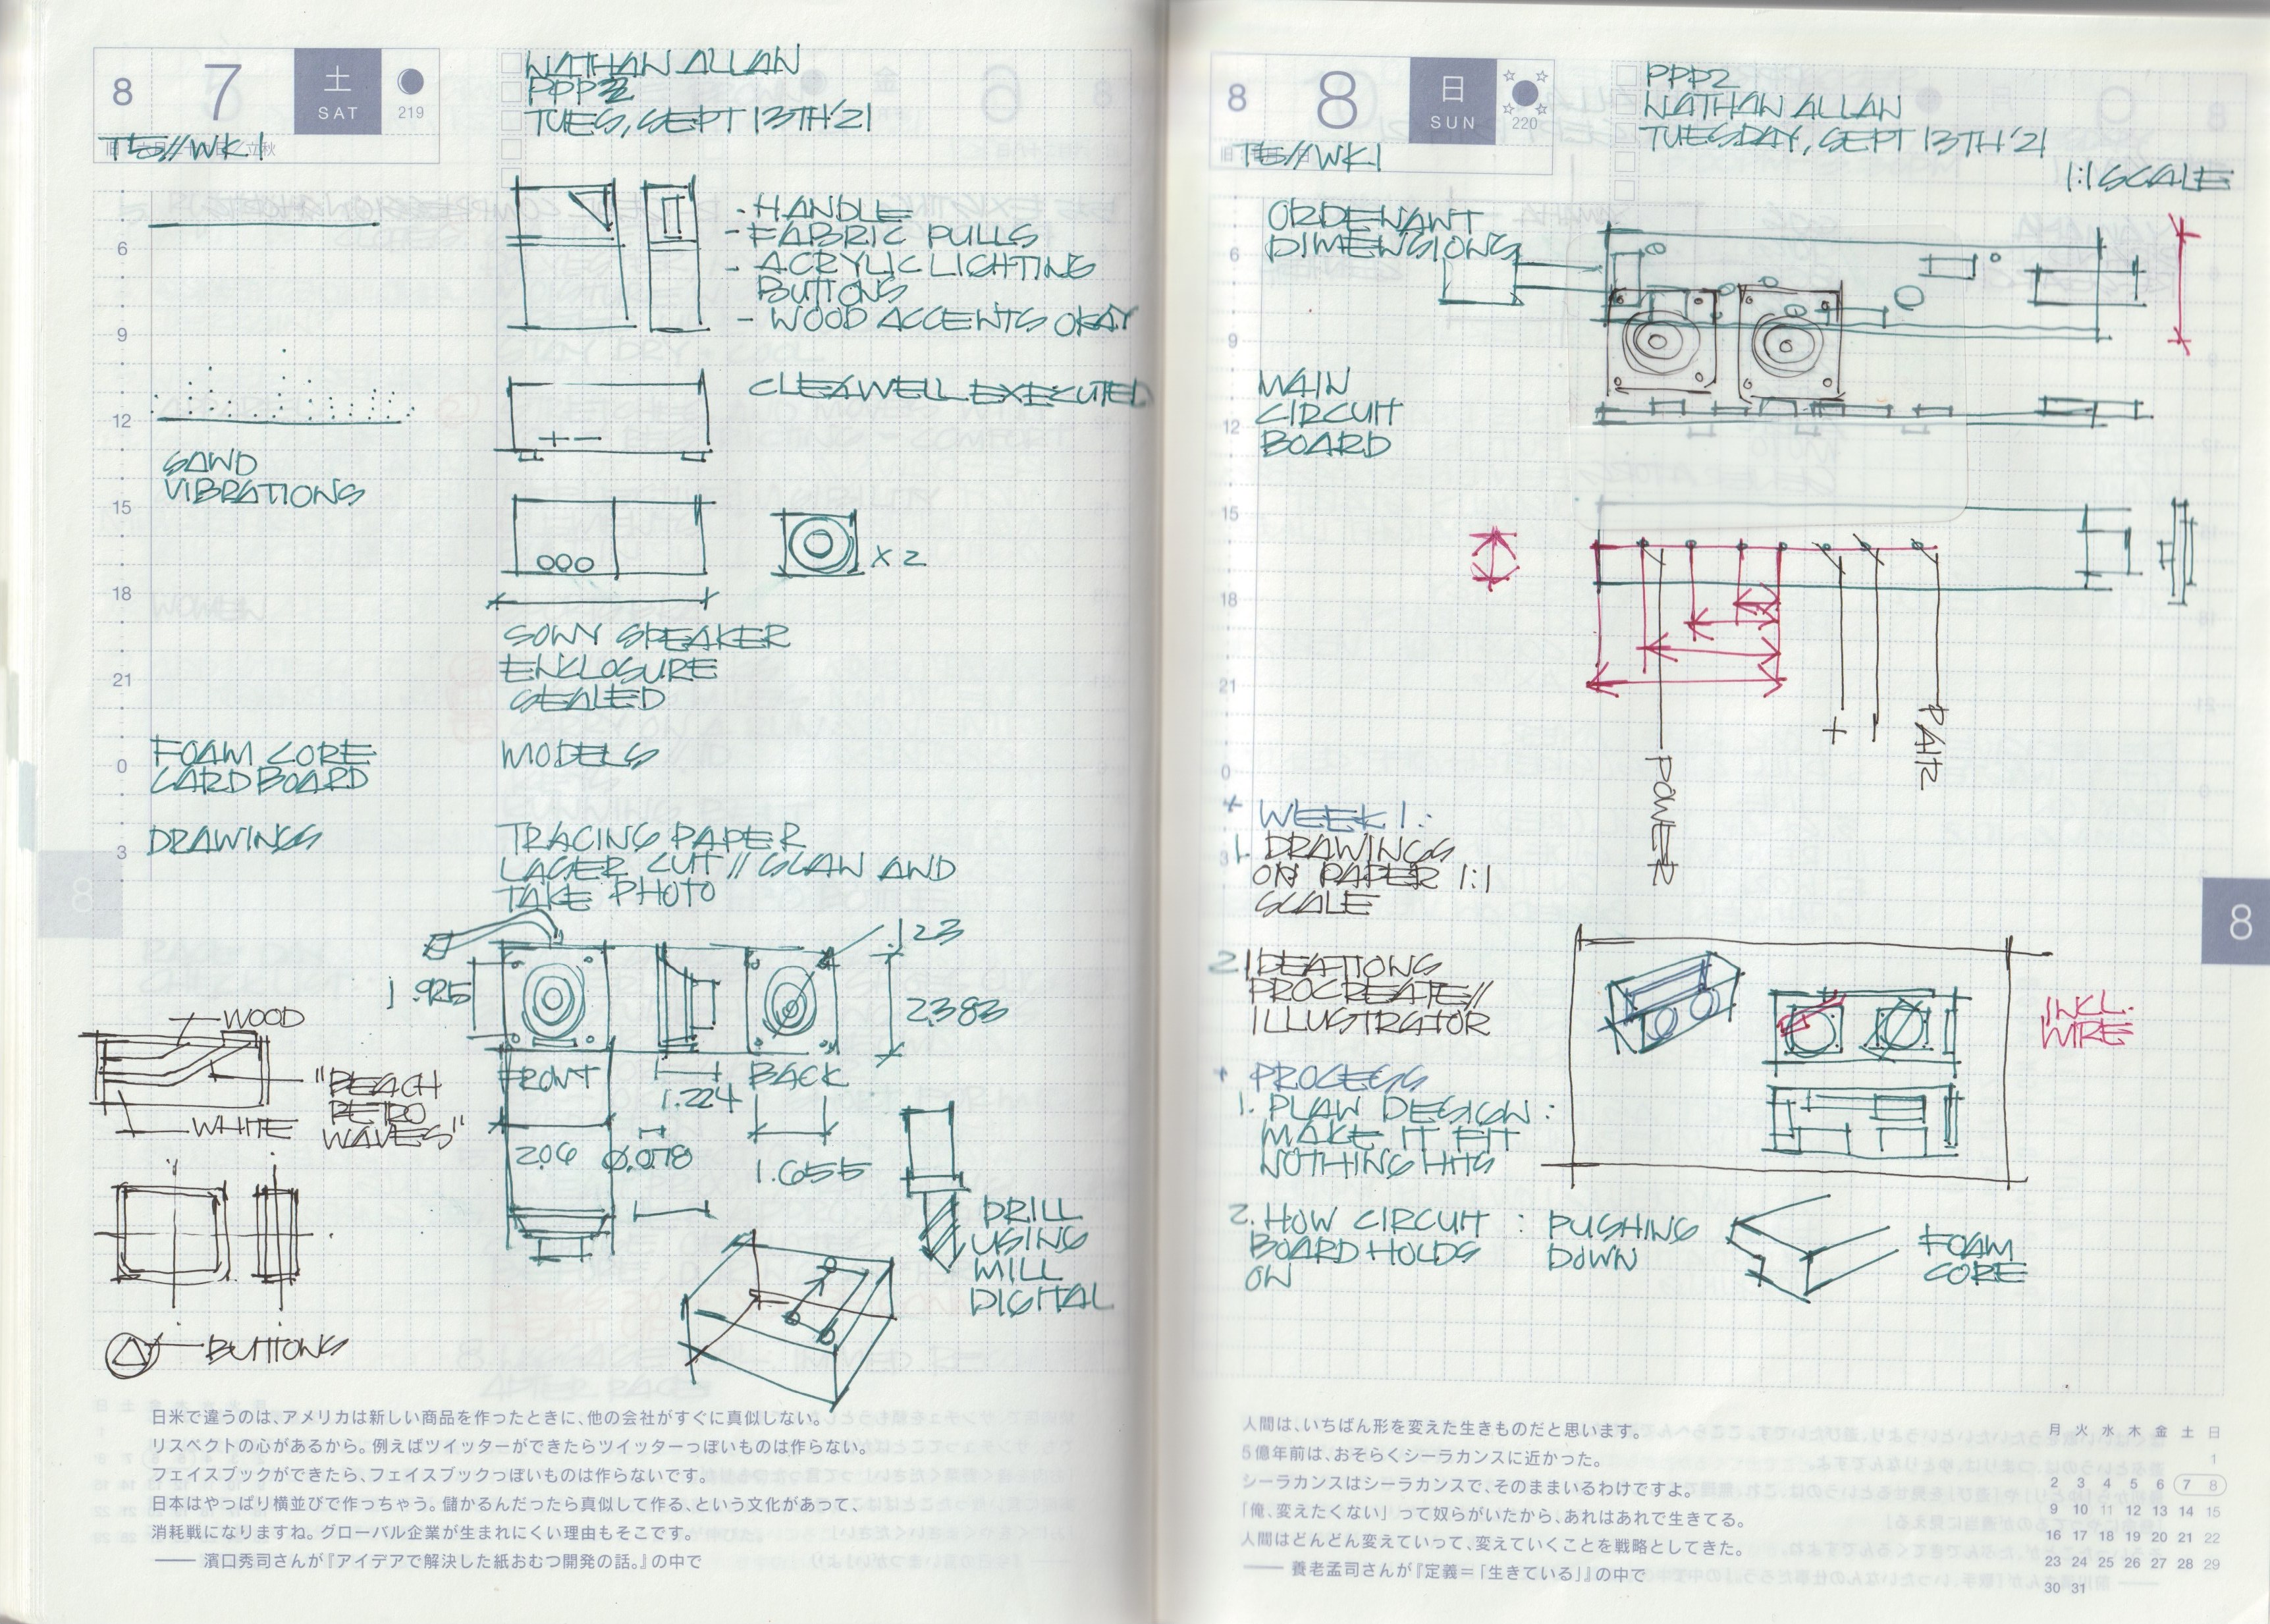 8 7 土 SAT 219
T5//WK.1
NATHAN ALLAN
PPP2
TUES, SEPT 13TH '21
6
9
12
15
18
21
0
3
8
- HANDLE
- FABRIC PULLS
- ACRYLIC LIGHTING
BUTTONS
- WOOD ACCENTS OKAY
SAND
VIBRATIONS
X 2
SONY SPEAKER
ENCLOSURE
SEALED
FOAM CORE
CARDBOARD
MODELS
DRAWINGS
TRACING PAPER
LASER CUT // SCAN AND
TAKE PHOTO
.123
1.925
2.383
FRONT
BACK
1.224
2.06
Ø.078
1.655
WOOD
"BEACH
RETRO
WAVES"
WHITE
BUTTONS
DRILL
USING
MILL
DIGITAL
日米で違うのは、アメリカは新しい商品を作ったときに、他の会社がすぐに真似しない。
リスペクトの心があるから。例えばツイッターができたらツイッターっぽいものは作らない。
フェイスブックができたら、フェイスブックっぽいものは作らないです。
日本はやっぱり横並びで作っちゃう。儲かるんだったら真似して作る、という文化があって、
消耗戦になりますね。グローバル企業が生まれにくい理由もそこです。
—— 濱口秀司さんが『アイデアで解決した紙おむつ開発の話。』の中で
8 8 日 SUN 220
T5//WK1
PPP2
NATHAN ALLAN
TUESDAY, SEPT 13TH '21
1:1 SCALE
6
9
12
15
18
21
0
3
DIMENSIONS
MAIN
CIRCUIT
BOARD
+
PAIR
POWER
+ WEEK 1:
1. DRAWINGS
ON PAPER 1:1
SCALE
2. IDEATIONS
PROCREATE//
ILLUSTRATOR
INCL.
WIRE
+ PROCESS
1. PLAN DESIGN:
MAKE IT FIT
NOTHING HITS
2. HOW CIRCUIT : PUSHING
BOARD HOLDS DOWN
ON
FOAM
CORE
8
人間は、いちばん形を変えた生きものだと思います。
5億年前は、おそらくシーラカンスに近かった。
シーラカンスはシーラカンスで、そのままいるわけですよ。
「俺、変えたくない」って奴らがいたから、あれはあれで生きてる。
人間はどんどん変えていって、変えていくことを戦略としてきた。
—— 養老孟司さんが『定義=「生きている」』の中で
月 火 水 木 金 土 日
1
2 3 4 5 6 7 8
9 10 11 12 13 14 15
16 17 18 19 20 21 22
23 24 25 26 27 28 29
30 31